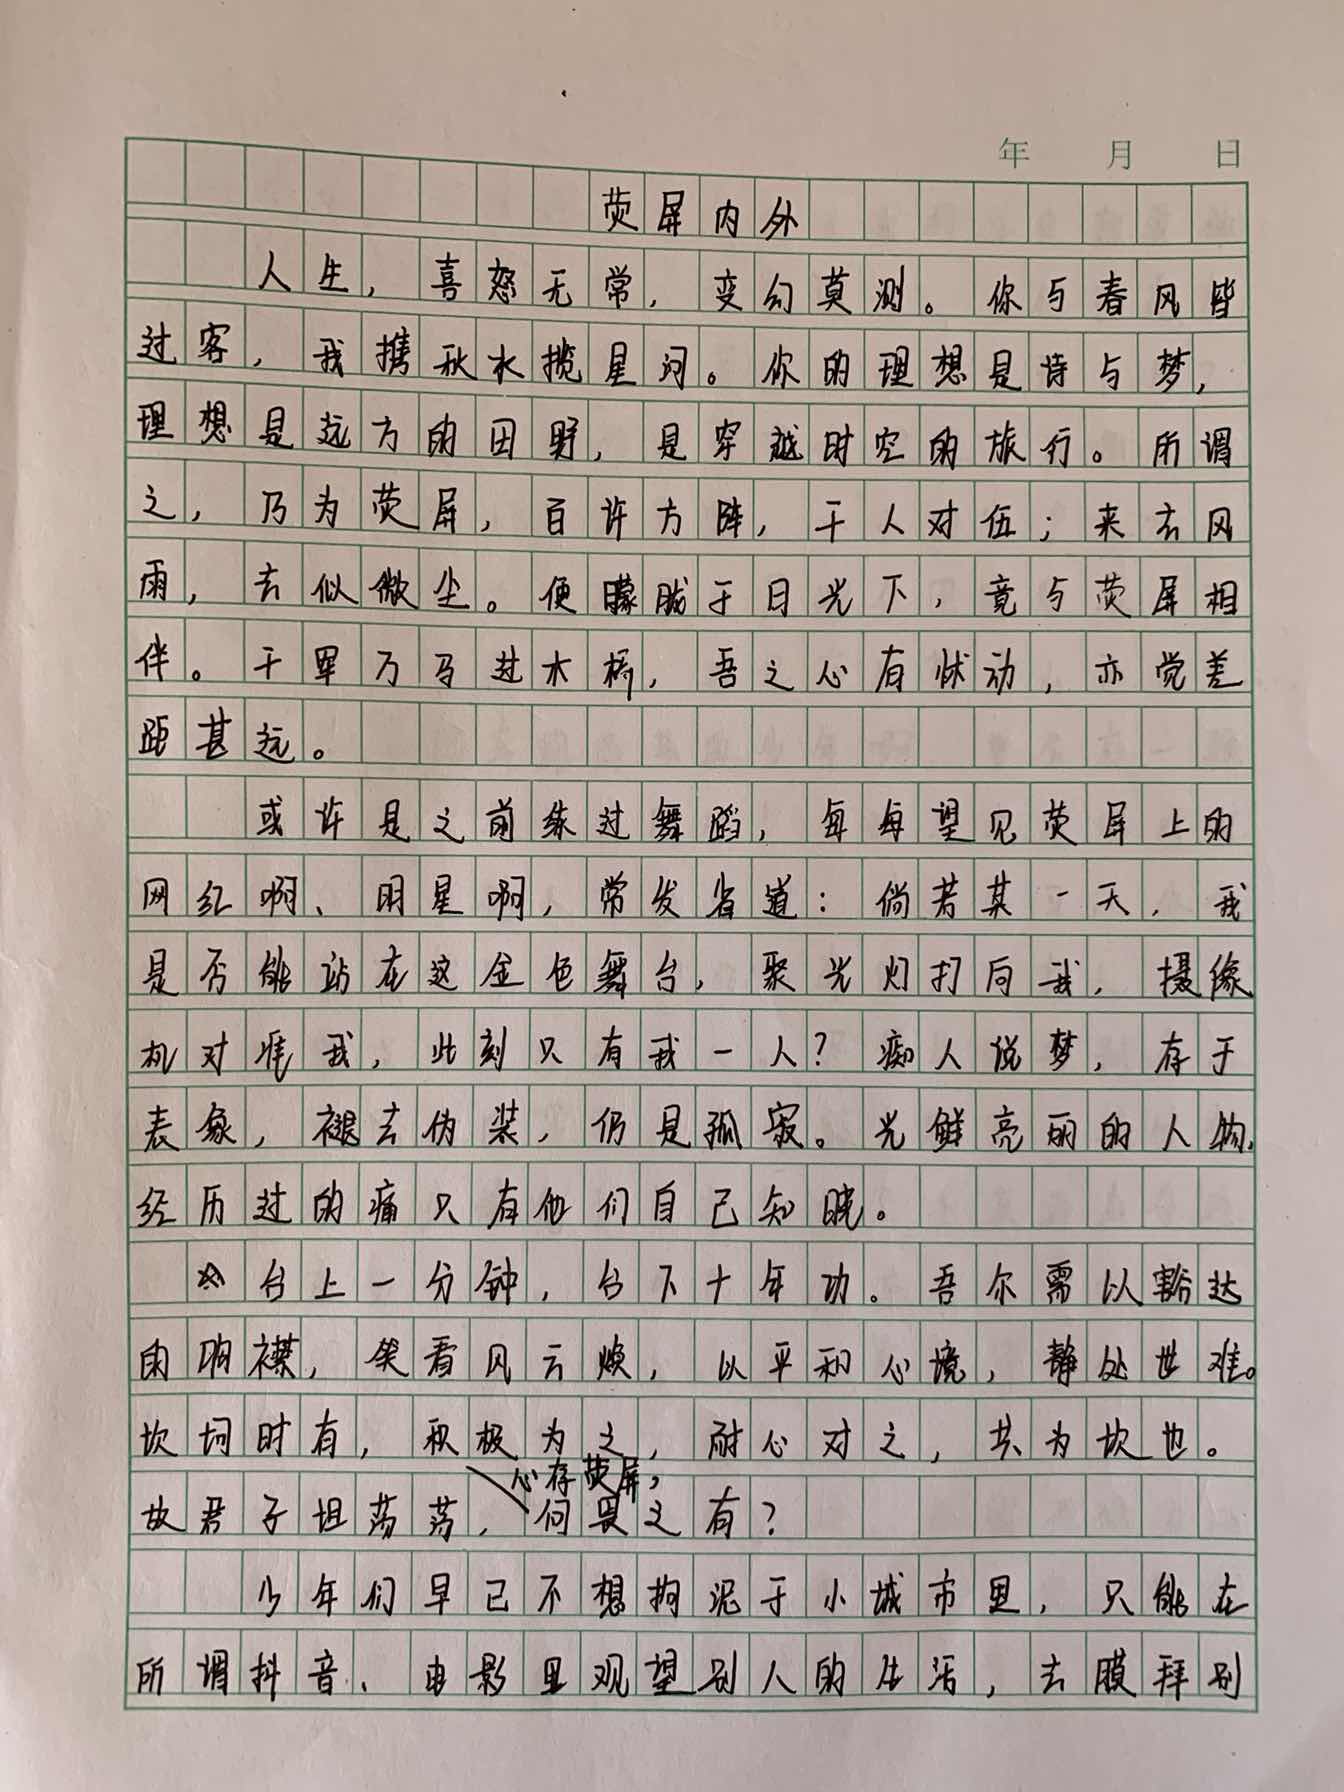 年 月 日
荧屏内外
人生，喜怒无常，变幻莫测。你与春风皆
过客，我携秋水揽星河。你的理想是诗与梦，
理想是远方的田野，是穿越时空的旅行。所谓
之，乃为荧屏，百许方阵，千人对伍；来去风
雨，去似微尘。便朦胧于日光下，竟与荧屏相
伴。千军万马过木桥，吾之心有怵动，亦觉差
距甚远。
或许是之前练过舞蹈，每每望见荧屏上的
网红啊、明星啊，常发省道：倘若某一天，我
是否能站在这金色舞台，聚光灯打向我，摄像
机对准我，此刻只有我一人？痴人说梦，存于
表象，褪去伪装，仍是孤寂。光鲜亮丽的人物，
经历过的痛只有他们自己知晓。
台上一分钟，台下十年功。吾尔需以豁达
的胸襟，笑看风云焕，以平和心境，静处世难。
坎坷时有，积极为之，耐心对之，共为坎也。
心存荧屏，
故君子坦荡荡，何畏之有？
少年们早已不想拘泥于小城市里，只能在
所谓抖音、电影里观望别人的生活，去膜拜别